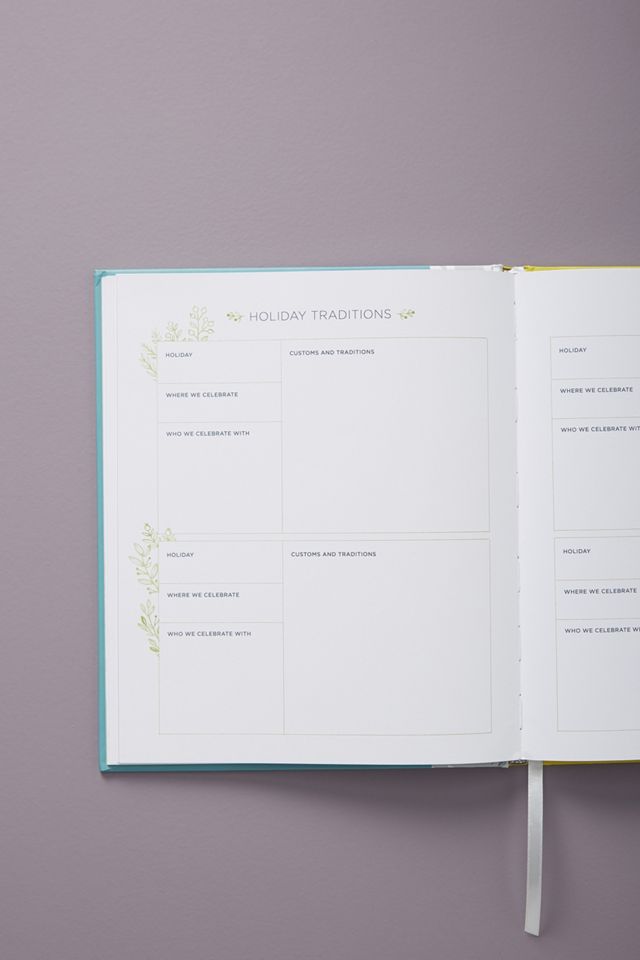 HOLIDAY TRADITIONS
HOLIDAY
WHERE WE CELEBRATE
WHO WE CELEBRATE WITH
CUSTOMS AND TRADITIONS
HOLIDAY
WHERE WE CELEBRATE
WHO WE CELEBRATE WITH
CUSTOMS AND TRADITIONS
HOLIDAY
WHERE WE CELEBRATE
WHO WE CELEBRATE
HOLIDAY
WHERE WE CELEBRATE
WHO WE CELEBRATE